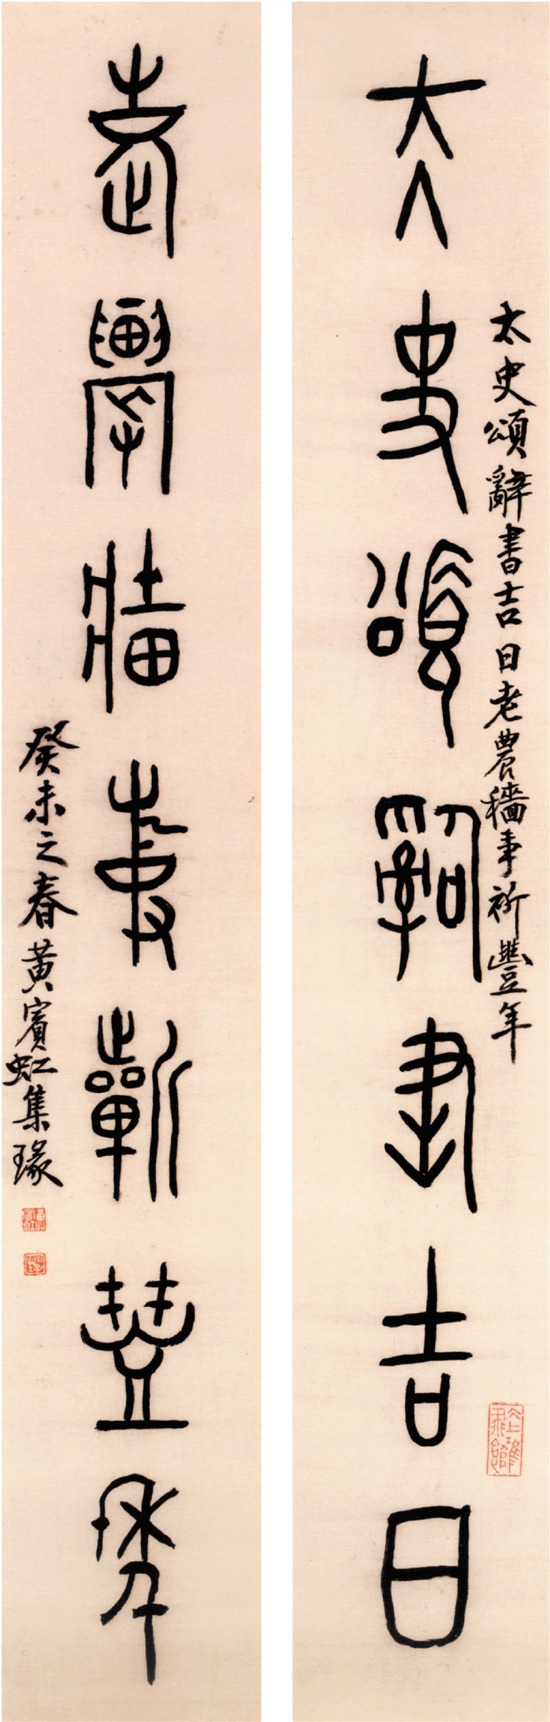 太史頌辭書吉日
老農穡事祈豐年
太史頌辭書吉日老農穡事祈豐年
癸未之春黃賓虹集瑑